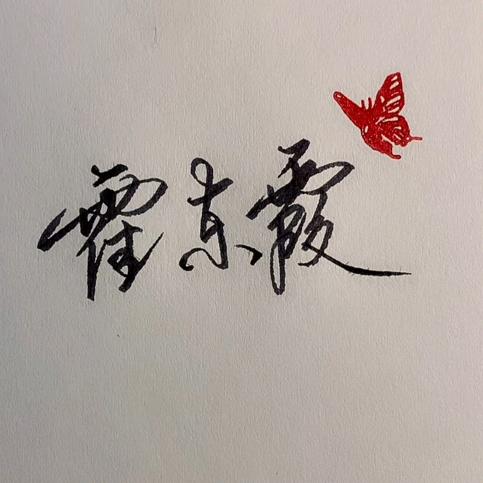 霍东霞